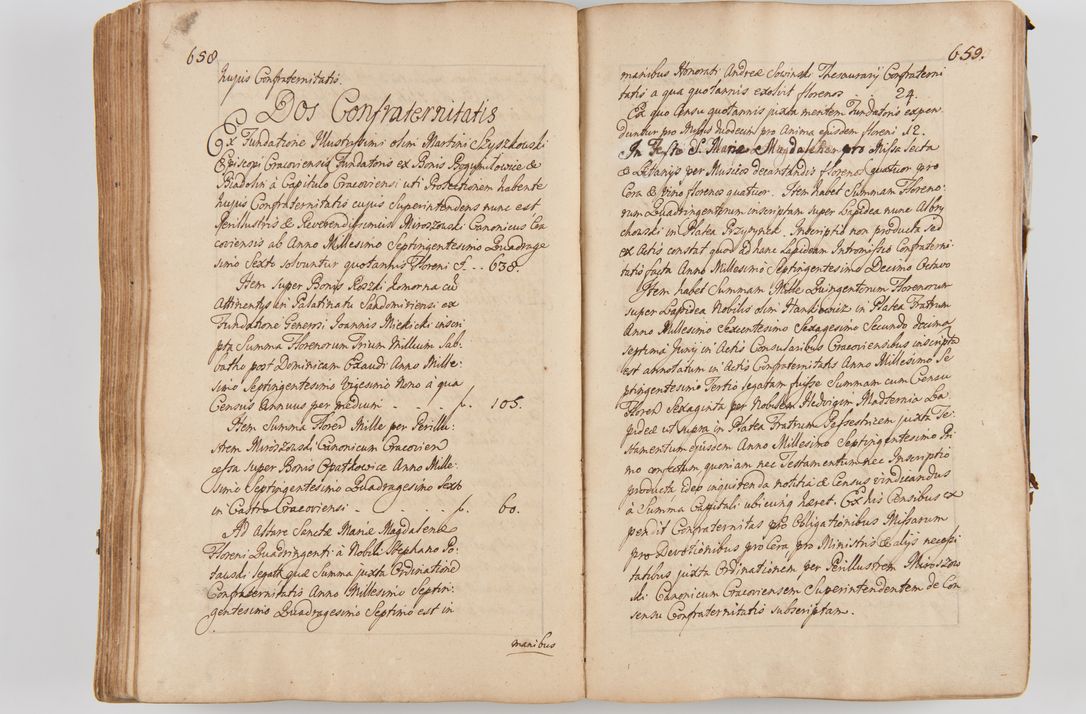 658
hujus Confraternitatis.
Dos Confraternitatis
Ex Fundatione Illustrissimi olim Martini Szyszkowski
Episcopi Cracoviensis Fundatoris ex Bonis Bogumilowice &
Biadolin à Capitulo Cracoviensi uti Protectionem habente
hujus Confraternitatis cujus Superintendens nunc est
Perillustris & Reverendissimus Miroszowski Canonicus Cra
coviensis ab Anno Millesimo Septingentesimo Quadrage
simo Sexto solvuntur quotannis Floreni f. . . 638.
Item Super Bonis Roszki Komorna cū
Attinentys in Palatinatu Sandomiriensi ex
Fundatione Generosi Joannis Miedicki inscri
pta Summa Florenorum Trium Millium Sab-
batho post Dominicam Exaudi Anno Mille-
simo Septingentesimo Vigesimo Nono à qua
Census Annuus per medium . . . f. 105.
Item Summa Floren Mille per Perillu-
strem Miroszowski Canonicum Cracovien
cessa Super Bonis Opatkowice Anno Mille-
simo Septingentesimo Quadragesimo Sexto
in Castro Cracoviensi . . . f. 60.
Ad Altare Sanctæ Mariæ Magdalenæ
Floreni Quadringenti à Nobili Stephano Po-
tawski legati quæ Summa juxta Ordinatione
Confraternitatis Anno Millesimo Septin-
gentesimo Quadragesimo Septimo est in
manibus
659.
manibus Honorati Andreæ Sowinski Thesaurarij Confraterni
tatis a qua quotannis exolvit florenos . . 24.
Ex quo Censu quotannis juxta mentem Fundatoris expen-
duntur pro Missis duodecim pro Anima ejusdem floreni 12.
In Festo S. Mariæ Magdalenæ pro Missa lecta
& Litanys per Musicos decantandis florenos quatuor pro
Cera & vino florenos quatuor. Item habet Summam Floreno-
rum Quadringentorum inscriptam super Lapidea nunc Albry
chowski in Platea Przypynka. Inscriptio non producta sed
ex Actis constat quod ad hanc Lapideam Intromissio Confraterni-
tatis facta Anno Millesimo Septingentesimo Decimo Octavo
Item habet Summam Mille Quingentorum Florenorum
super Lapidea Nobilis olim Hankowicz in Platea Fratrum
Anno Millesimo Sexcentesimo Sexagesimo Secundo decima
septima Junij in Actis Consularibus Cracoviensibus inscripta
est adnotatum in Actis Confraternitatis Anno Millesimo Se
ptingentesimo Tertio legatam fuisse Summam cum Censu
Floren Sexaginta per Nobilem Hedvigim Madternia La-
pideæ ut supra in Platea Fratrum Possestricem juxta Te-
stamentum ejusdem Anno Millesimo Septingentesimo Pri
mo confectum quoniam nec Testamentum nec Inscriptio
producta ideo inquirenda notitia & Census vindicandus
à Summa Capitali ubicunq hæret. Ex his Censibus ex
pendit Confraternitas pro Obligationibus Missarum
pro Devotionibus pro Cera pro Ministris & alijs necessi
tatibus juxta Ordinationem per Perillustrem Miroszow
ski Canonicum Cracoviensem Superintendentem de Con
sensu Confraternitatis subscriptam.